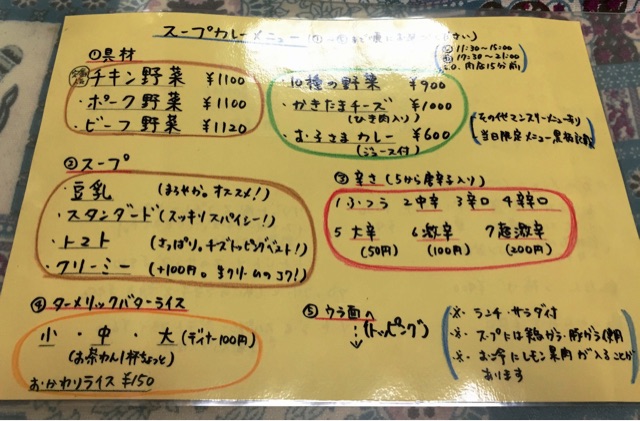 スープカレーメニュー
昼 11:30~15:00
夜 17:30~21:00
L.O. 閉店15分前
①具材
チキン野菜 ¥1100
・ポーク野菜 ¥1100
・ビーフ野菜 ¥1120
・10種の野菜 ¥900
・かきたまチーズ ¥1000
(ひき肉入り)
・お子さまカレー ¥600
(ジュース付)
その他マンスリーメニューあり
当日限定メニュー黒板
②スープ
・豆乳 (まろやか。オススメ!)
・スタンダード(スッキリスパイシー!)
・トマト (さっぱり。チーズトッピングベスト!)
・クリーミー (+100円。生クリームのコク!)
③辛さ (5から唐辛子入り)
1ふつう 2中辛 3辛口 4辛辛口
5大辛 6激辛 7超激辛
(50円) (100円) (200円)
④ターメリックバターライス
小・中・大 (ディナー100円)
(お茶わん1杯ちょっと)
おかわりライス ¥150
⑤ウラ面へ
(トッピング)
※・ランチ・サラダ付
※・スープには鶏ガラ・豚ガラ使用
※・
あります